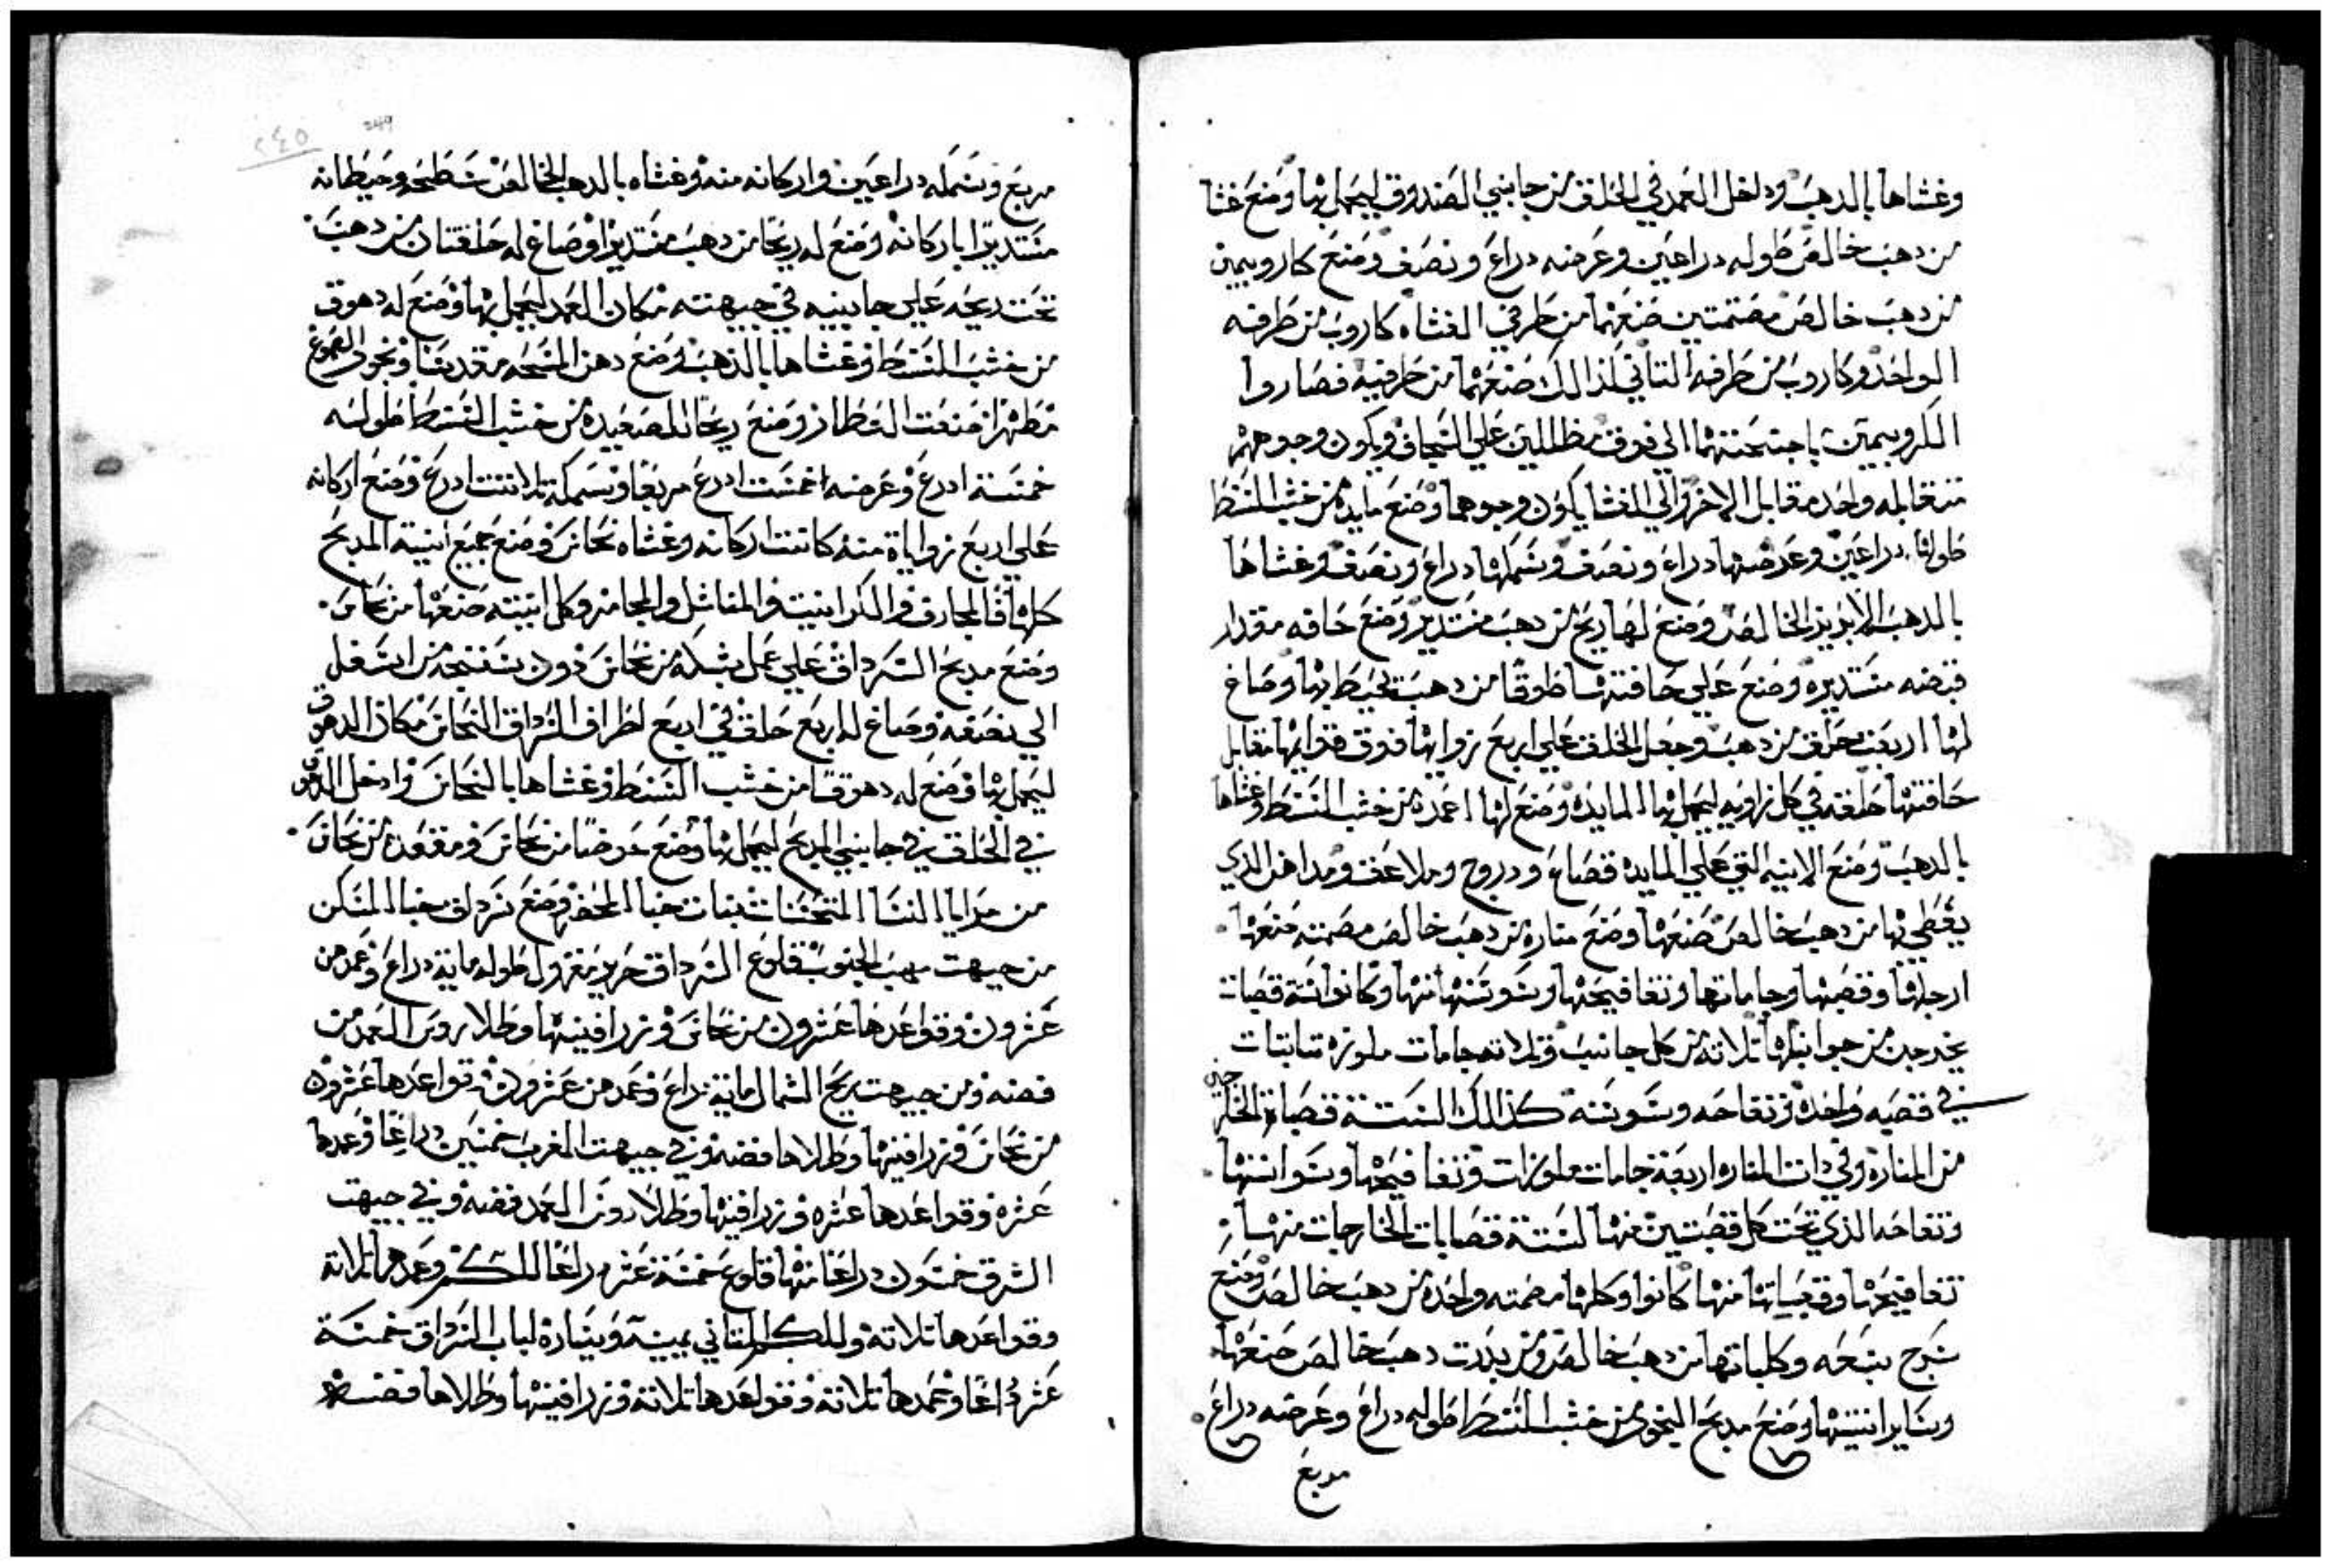 وغشاها بالدهب ودخل العمد في الخلق من جانبي الصندوق ليحمل بها وصنع غشا
من دهب خالص طوله دراعين وعرضه دراع ونصف وصنع كاروبيمين
من دهب خالص مصتمتين صنعهما من طرفي الغشاه كاروب من طرفه
الواحد وكاروب من طرفه التاني لذالك صنعهما من طرفيه فصاروا
الكروبيمين باجنحتهما الي فوق مظللين علي السجاف ويكون وجوههم
متقابله واحد مقابل الاخر والي الغشا يكون وجوهما وصنع مايده من خشب السنط
طولها دراعين وعرضها دراع ونصف وسمكها دراع ونصف وغشاها
بالدهب الابريز الخالص وصنع لها ريح من دهب مستدير وصنع حافه مقدار
قبضه مستديره وصنع علي حافتها طوقا من دهب تحيط بها وصاغ
لها اربعت حلق من دهب وجعل الحلق علي اربع زواياها فوق قوايمها مقابل
حافتها حلقه في كل زاويه ليحمل بها المايده وصنع لها اعمده من خشب السنط وغشاها
بالدهب وصنع الانيه التي علي المايده قصاع ودروج وملاعق ومداهن الدي
يغطي بها من دهب خالص صنعها وصنع مناره من دهب خالص مصمته صنعها
ارجلها وقصبها وجاماتها وتفافيحها وسوسنها منها وكانوا ستة قصبات
يخرجن من جوانبها تلاته من كل جانب وتلاته جامات ملوزه تنابتات
في قصبه واحده وتفاحه وسوسنه كذالك الستة قصباة الخارجين
من المنارة وفي دات المناره اربعة جامات ملوزات وتفافيحها وسواسنها
وتفاحه الذي تحت كل قصبتين منها لستة قصابات الخارجات منها
تفافيحها وقصباتها منها كانوا وكلها مصمته واحده من دهب خالص وصنع
سرج سبعه وكلباتها من دهب خالص ومن بدرت دهب خالص صنعها
وساير انيتها وصنع مدبح البخور من خشب السنط طوله دراع وعرضه دراع
مربع
مربع وسمكه دراعين واركانه منه وغشاه بالدهب الخالص سطحه وحيطانه
مستديرا باركانه وصنع له ريحا من دهب مستديرا وصاغ له حلقتان من دهب
تحت ريحه علي جانبيه في جيهته مكان العمد ليحمل بها وصنع له دهوق
من خشب السنط وغشاها بالذهب وصنع دهن المسحه مقدسا وبخور الصموغ
مطهرا صنعت العطار وصنع ريحا للصعيده من خشب السنط طوله
خمسة ادرع وعرضه اخمست ادرع مربعا وسمكه تلاتت ادرع وصنع اركانه
علي اربع زواياة منه كانت اركانه وغشاه نحاس وصنع جميع انية المدبح
كلها فالمجارف والكرانيب والمناشل والمجامر وكل انيته صنعها من نحاس
وصنع مدبح السرداق علي عمل شبكه من نحاس دون شفته من اسفل
الي نصفه وصاغ له اربع حلق في اربع اطراف السرداق النحاس مكان الدهوق
ليحمل بها وصنع له دهوقا من خشب السنط وغشاها بالنحاس وادخل الدهوق
في الحلق في جانبي المدبح ليحمل بها وصنع حوضا من نحاس ومقعده من نحاس
من مرايا النسا المتحسنات بباب خبا المحضر وصنع سرداق خبا المسكن
من جيهت مهب الجنوب قلوع السرداق حرير مغزول طوله ماية دراع وعمدهن
عشرون وقواعدها عشرون من نحاس وزرافينها وطلا روس العمد من
فضه ومن جيهت ريح الشمال ماية دراع وعمدهن عشرون وقواعدها عشرون
من نحاس وزرافينها وطلاها فضه وفي جيهت المغرب خمسين دراعا وعمدها
عشره وقواعدها عشره وزرافينها وطلا روس العمد فضه وفي جيهت
الشرق خمسون دراعا منها قلوع خمسة عشر دراعا للكم وعمدها تلاتة
وقواعدها تلاتة وللكم التاني يمينه ويساره لباب السرداق خمسة
عشر دراعا وعمدها تلاتة وقواعدها تلاتة وزرافينها وطلاها فضه